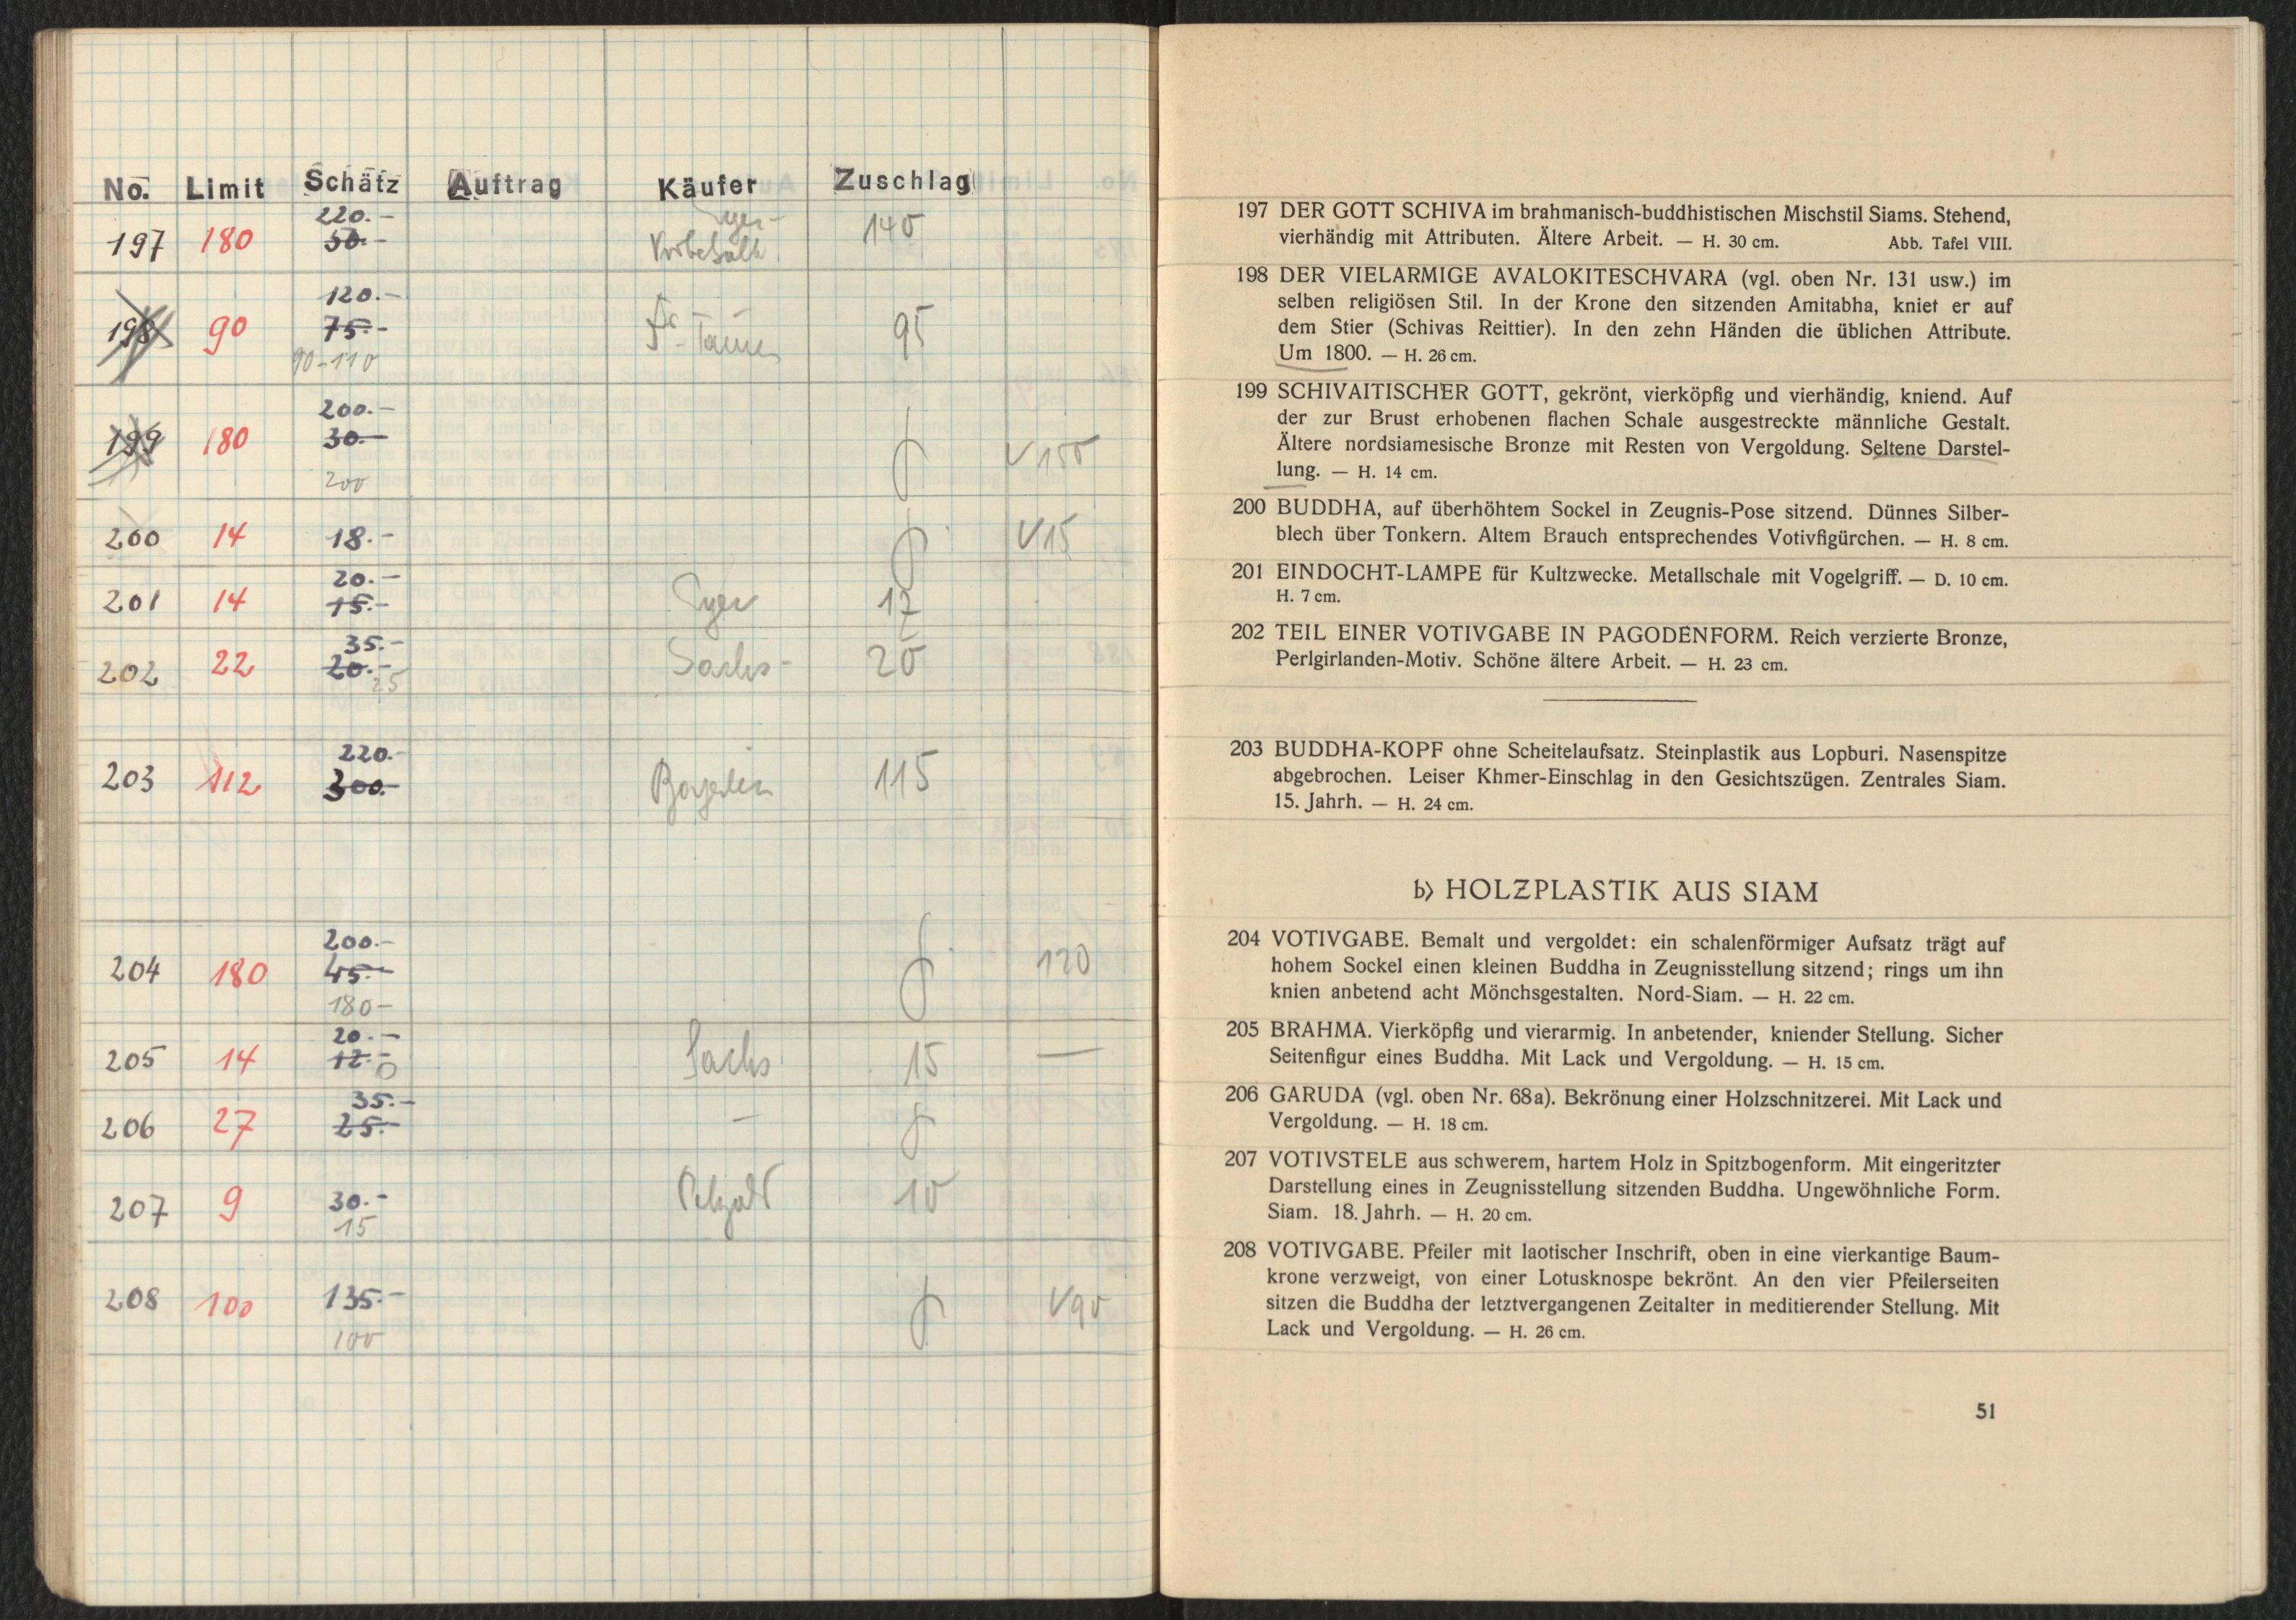 No. Limit Schätz Auftrag Käufer Zuschlag
220.-
197 180 50.- Vorbehalt 140
120.-
198 90 75.- 95
90-110
200.-
199 180 30.- V 150
200
200 14 18.- V 15
20.-
201 14 15.- 17
35.-
202 22 20.- Sachs- 20
25
220.-
203 112 300.- 115
200.-
204 180 45.- 120
180-
20.-
205 14 12.- Sachs 15 —
35.-
206 27 25.- —
207 9 30.- 10
15
208 100 135.- V 90
100
197 DER GOTT SCHIVA im brahmanisch-buddhistischen Mischstil Siams. Stehend,
vierhändig mit Attributen. Ältere Arbeit. — H. 30 cm. Abb. Tafel VIII.
198 DER VIELARMIGE AVALOKITESCHVARA (vgl. oben Nr. 131 usw.) im
selben religiösen Stil. In der Krone den sitzenden Amitabha, kniet er auf
dem Stier (Schivas Reittier). In den zehn Händen die üblichen Attribute.
Um 1800. — H. 26 cm.
199 SCHIVAITISCHER GOTT, gekrönt, vierköpfig und vierhändig, kniend. Auf
der zur Brust erhobenen flachen Schale ausgestreckte männliche Gestalt.
Ältere nordsiamesische Bronze mit Resten von Vergoldung. Seltene Darstel-
lung. — H. 14 cm.
200 BUDDHA, auf überhöhtem Sockel in Zeugnis-Pose sitzend. Dünnes Silber-
blech über Tonkern. Altem Brauch entsprechendes Votivfigürchen. — H. 8 cm.
201 EINDOCHT-LAMPE für Kultzwecke. Metallschale mit Vogelgriff. — D. 10 cm.
H. 7 cm.
202 TEIL EINER VOTIVGABE IN PAGODENFORM. Reich verzierte Bronze,
Perlgirlanden-Motiv. Schöne ältere Arbeit. — H. 23 cm.
203 BUDDHA-KOPF ohne Scheitelaufsatz. Steinplastik aus Lopburi. Nasenspitze
abgebrochen. Leiser Khmer-Einschlag in den Gesichtszügen. Zentrales Siam.
15. Jahrh. — H. 24 cm.
b) HOLZPLASTIK AUS SIAM
204 VOTIVGABE. Bemalt und vergoldet: ein schalenförmiger Aufsatz trägt auf
hohem Sockel einen kleinen Buddha in Zeugnisstellung sitzend; rings um ihn
knien anbetend acht Mönchsgestalten. Nord-Siam. — H. 22 cm.
205 BRAHMA. Vierköpfig und vierarmig. In anbetender, kniender Stellung. Sicher
Seitenfigur eines Buddha. Mit Lack und Vergoldung. — H. 15 cm.
206 GARUDA (vgl. oben Nr. 68a). Bekrönung einer Holzschnitzerei. Mit Lack und
Vergoldung. — H. 18 cm.
207 VOTIVSTELE aus schwerem, hartem Holz in Spitzbogenform. Mit eingeritzter
Darstellung eines in Zeugnisstellung sitzenden Buddha. Ungewöhnliche Form.
Siam. 18. Jahrh. — H. 20 cm.
208 VOTIVGABE. Pfeiler mit laotischer Inschrift, oben in eine vierkantige Baum-
krone verzweigt, von einer Lotusknospe bekrönt. An den vier Pfeilerseiten
sitzen die Buddha der letztvergangenen Zeitalter in meditierender Stellung. Mit
Lack und Vergoldung. — H. 26 cm.
51